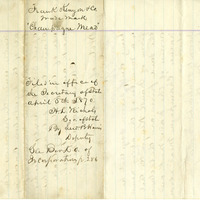 Frank Kenyon & Co
Trade Mark
"Champagne Mead"
Filed in office of
the Secretary of State
April 5th 1870.
H. L. Nichols
Secy of State
By
Deputy
See Book C. of
Incorporations p 338